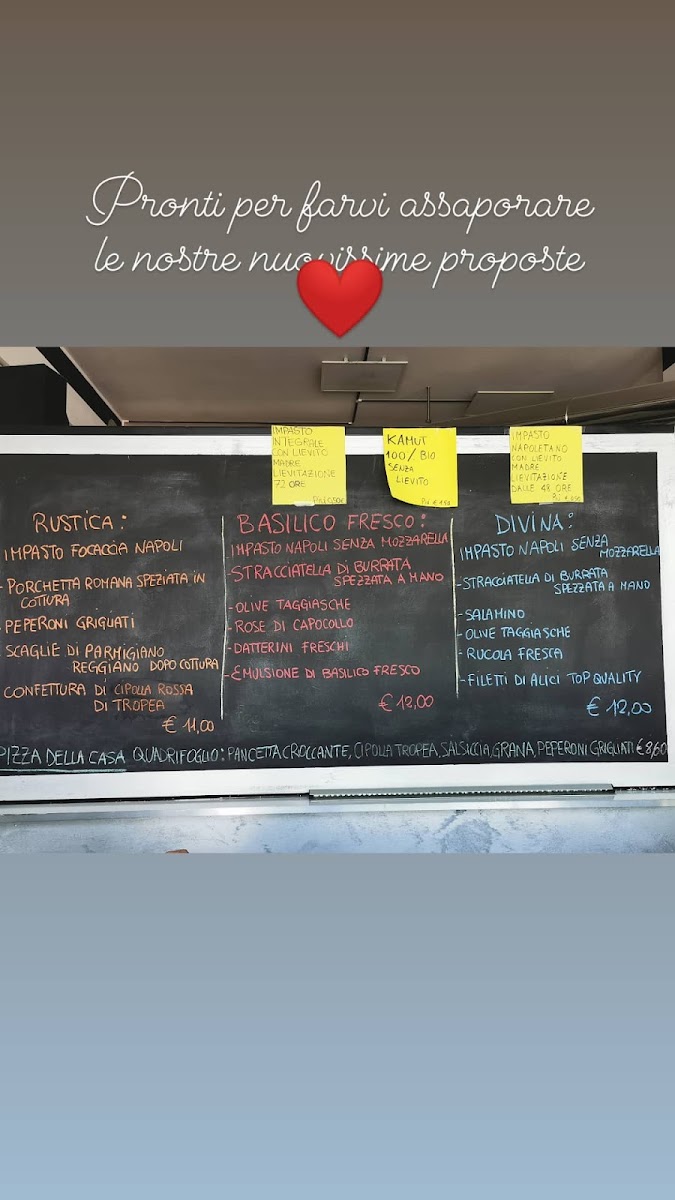 Pronti per farvi assaporare
le nostre nuovissime proposte
IMPASTO
INTEGRALE
CON LIEVITO
MADRE
LIEVITAZIONE
72 ORE
Più 0,50€
KAMUT
100/BIO
SENZA
LIEVITO
Più € 1,50
IMPASTO
NAPOLETANO
CON LIEVITO
MADRE
LIEVITAZIONE
DALLE 48 ORE
Più €
RUSTICA:
IMPASTO FOCACCIA NAPOLI
- PORCHETTA ROMANA SPEZIATA IN
COTTURA
- PEPERONI GRIGLIATI
SCAGLIE DI PARMIGIANO
REGGIANO DOPO COTTURA
CONFETTURA DI CIPOLLA ROSSA
DI TROPEA
€ 11,00
BASILICO FRESCO:
IMPASTO NAPOLI SENZA MOZZARELLA
- STRACCIATELLA DI BURRATA
SPEZZATA A MANO
- OLIVE TAGGIASCHE
- ROSE DI CAPOCOLLO
- DATTERINI FRESCHI
- EMULSIONE DI BASILICO FRESCO
€ 12,00
DIVINA:
IMPASTO NAPOLI SENZA
MOZZARELLA
- STRACCIATELLA DI BURRATA
SPEZZATA A MANO
- SALAMINO
- OLIVE TAGGIASCHE
- RUCOLA FRESCA
- FILETTI DI ALICI TOP QUALITY
€ 12,00
PIZZA DELLA CASA QUADRIFOGLIO: PANCETTA CROCCANTE, CIPOLLA TROPEA, SALSICCIA, GRANA, PEPERONI GRIGLIATI € 8,60